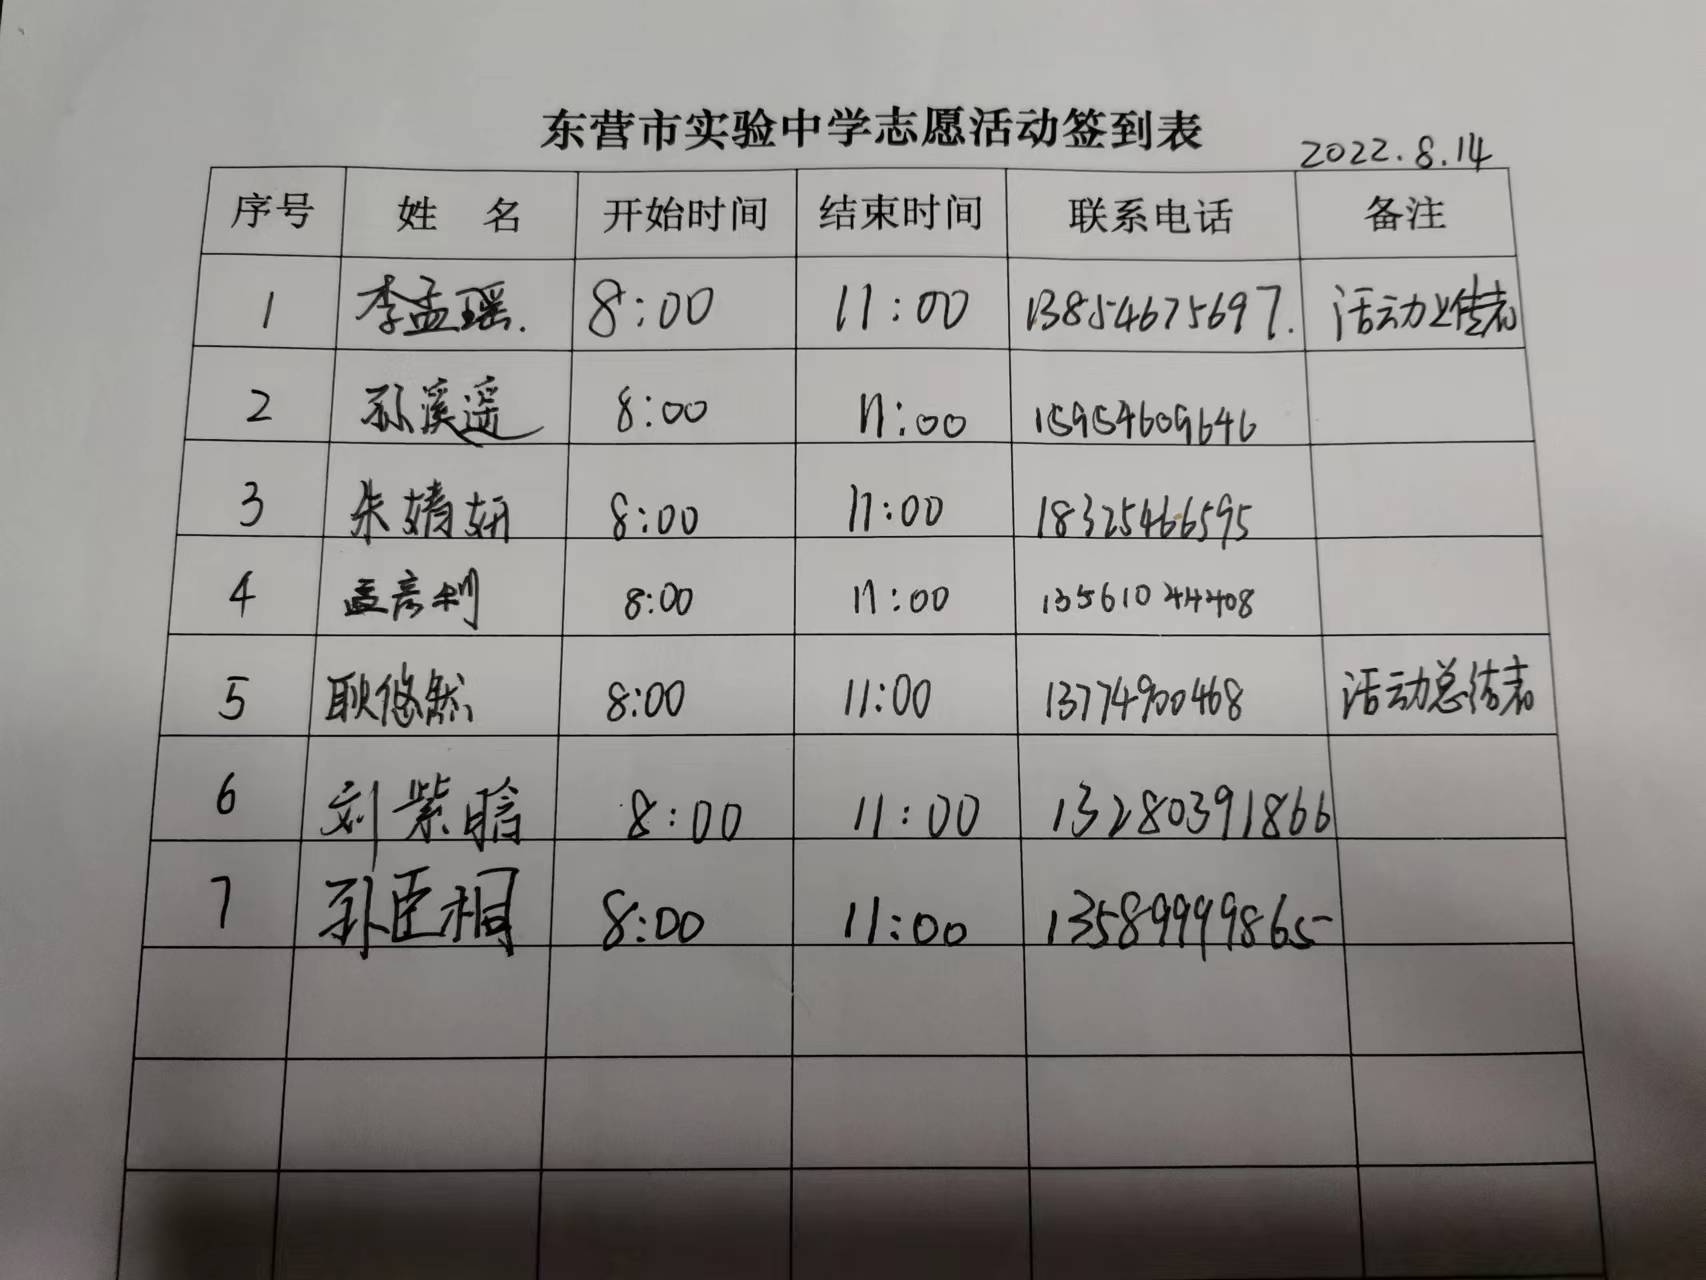 东营市实验中学志愿活动签到表
2022.8.14
序号 姓 名 开始时间 结束时间 联系电话 备注
1 李孟瑶. 8:00 11:00 13854675697. 活动上传表
2 孙溪遥 8:00 11:00 15954609646
3 朱婧妍 8:00 11:00 18325466595
4 孟彦利 8:00 11:00 13561044408
5 耿悠然 8:00 11:00 13774900468 活动总结表
6 刘紫晗 8:00 11:00 13280391866
7 孙臣桐 8:00 11:00 13589999865